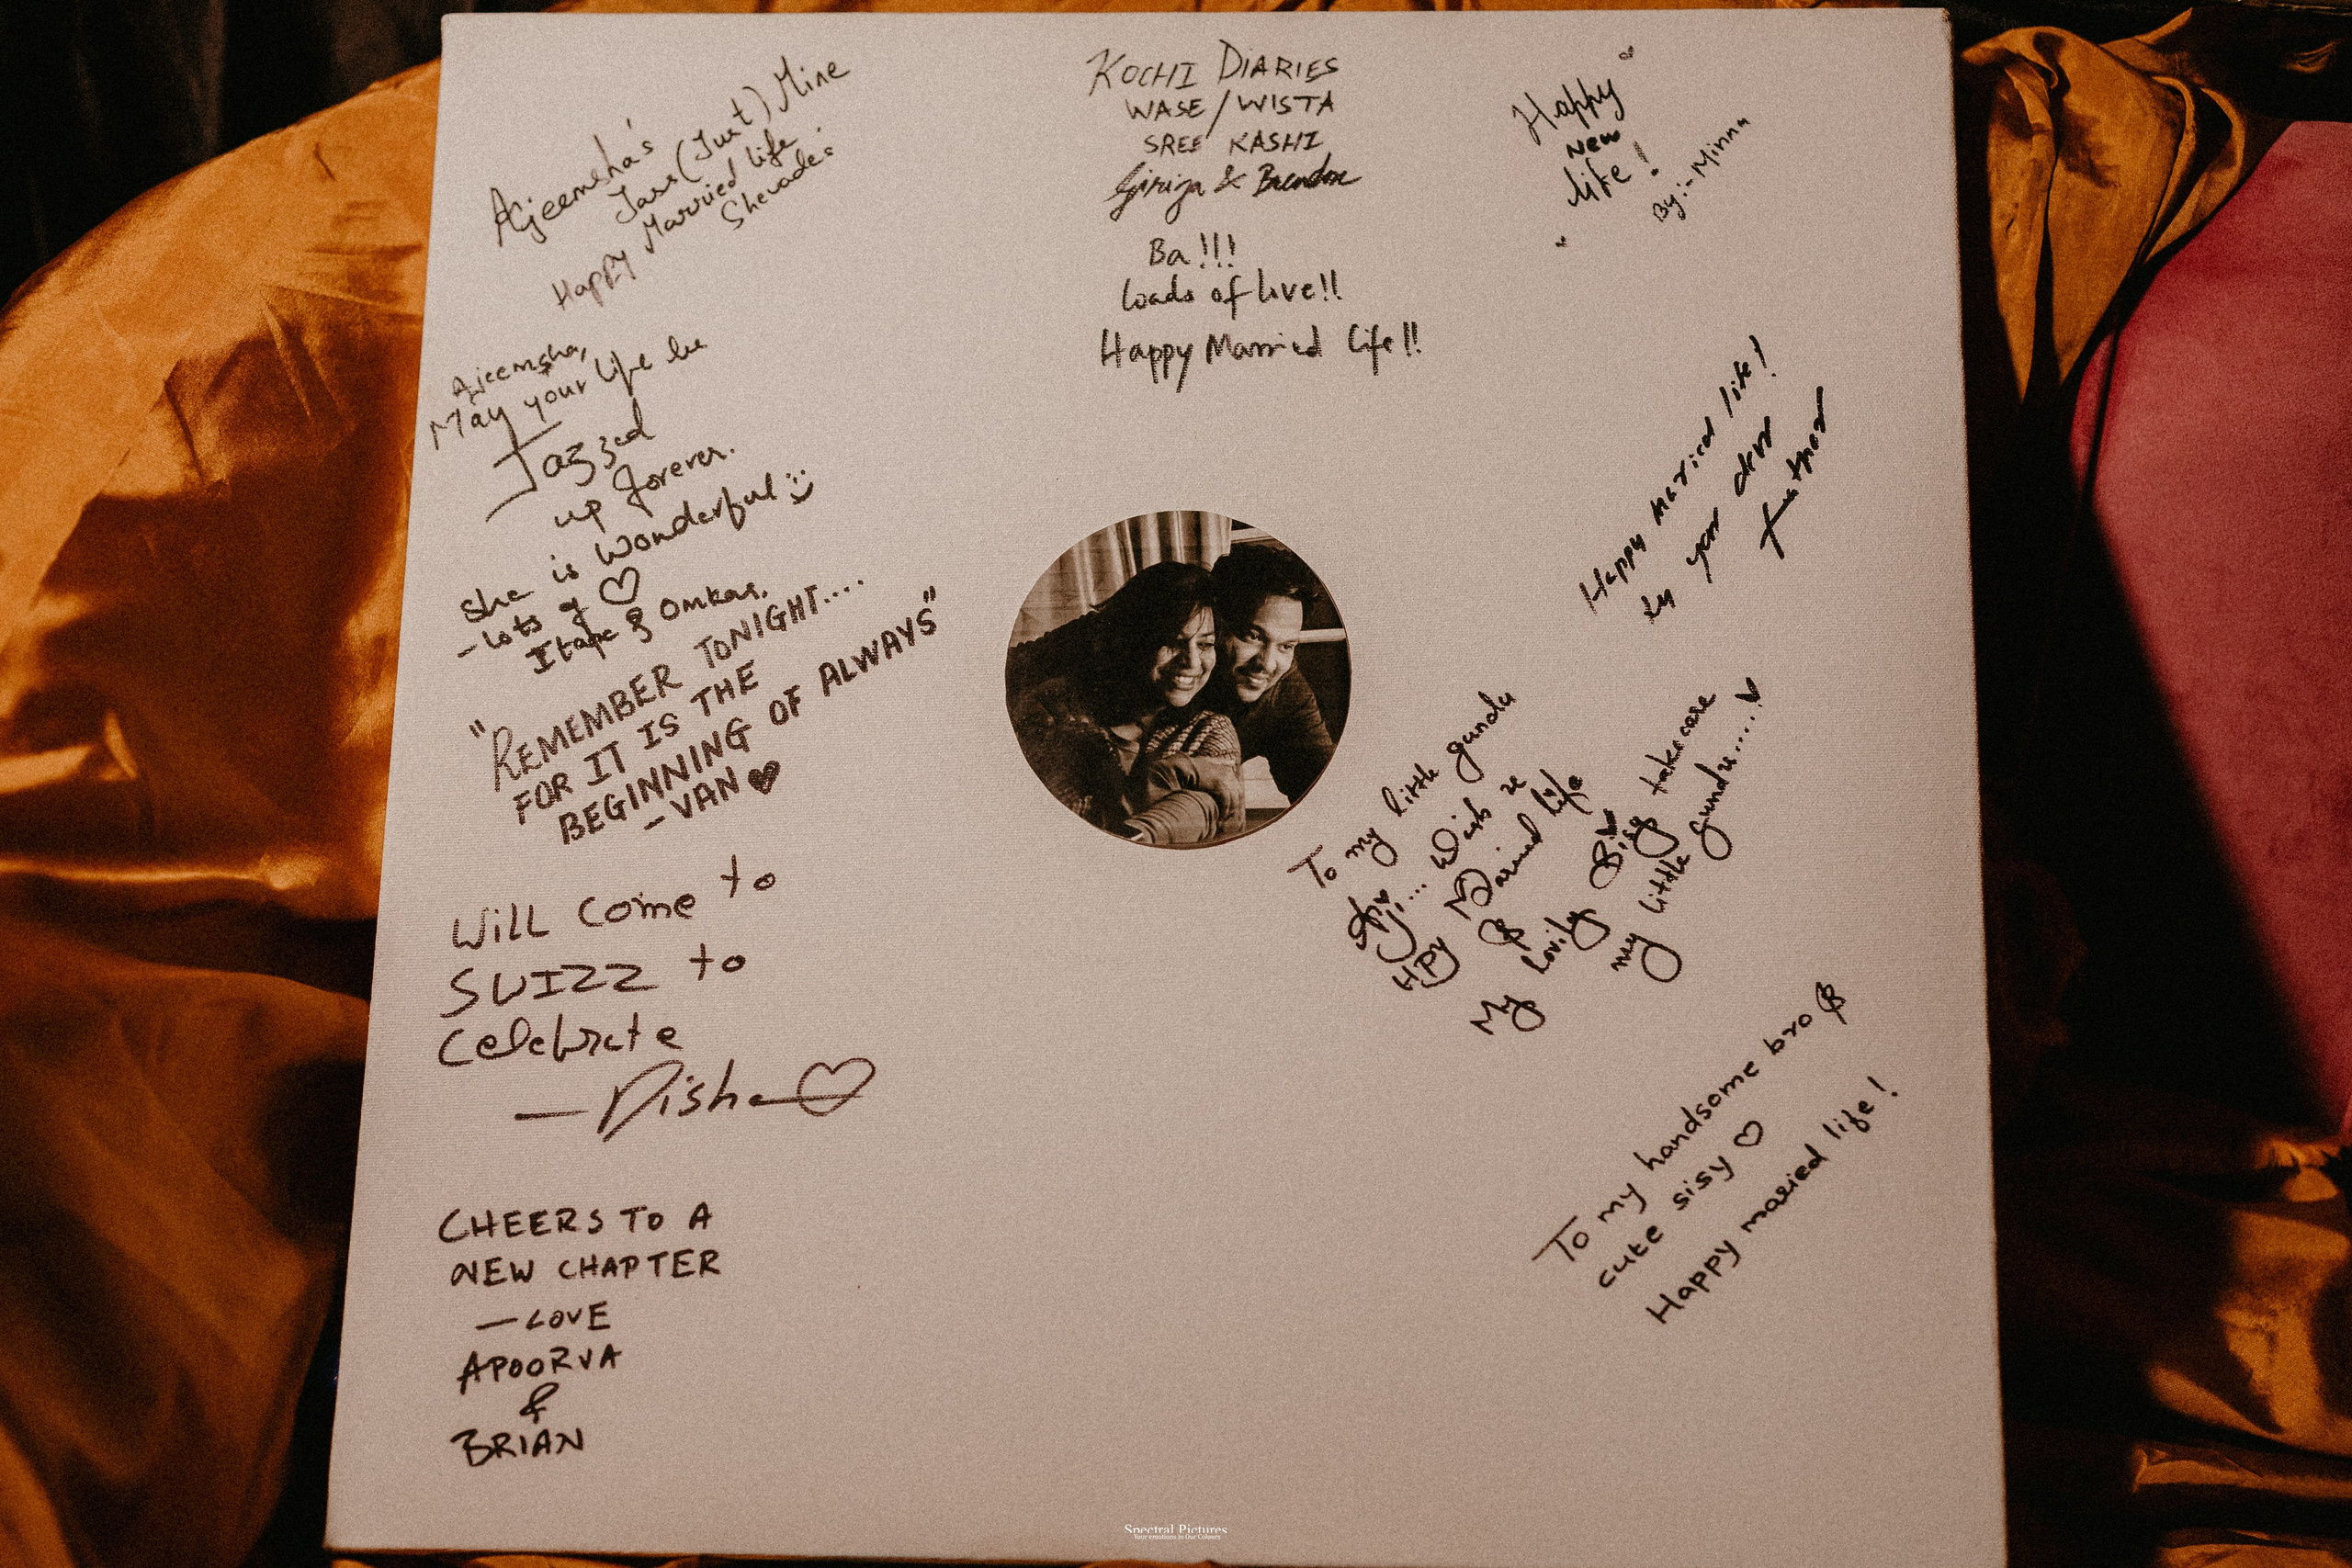 Ajeemsha's
Jass (Just) Mine
Happy Married life
Shevade's
Ajeemsha,
May your life be
Jazzed
up forever.
She is Wonderful
- lots of ♡
& Omkar.
"REMEMBER TONIGHT....
FOR IT IS THE
BEGINNING OF ALWAYS"
- VAN ♥
Will Come to
SWIZZ to
Celebrate
— Disha ♡
CHEERS TO A
NEW CHAPTER
— LOVE
APOORVA
&
BRIAN
KOCHI DIARIES
WASE/WISTA
SREE KASHI
Girija & Brendon
Ba!!!
Loads of love!!
Happy Married Life!!
Happy
New
life!
By:- Minna
Happy Married life!
by your dear
father
To my little gundu
... Wish u
HPY Maried life
&
My lovily Sisy take care
my little gundu.....♥
To my handsome bro &
cute sisy ♡
Happy maried life!
Spectral Pictures
Your emotions in Our Colours